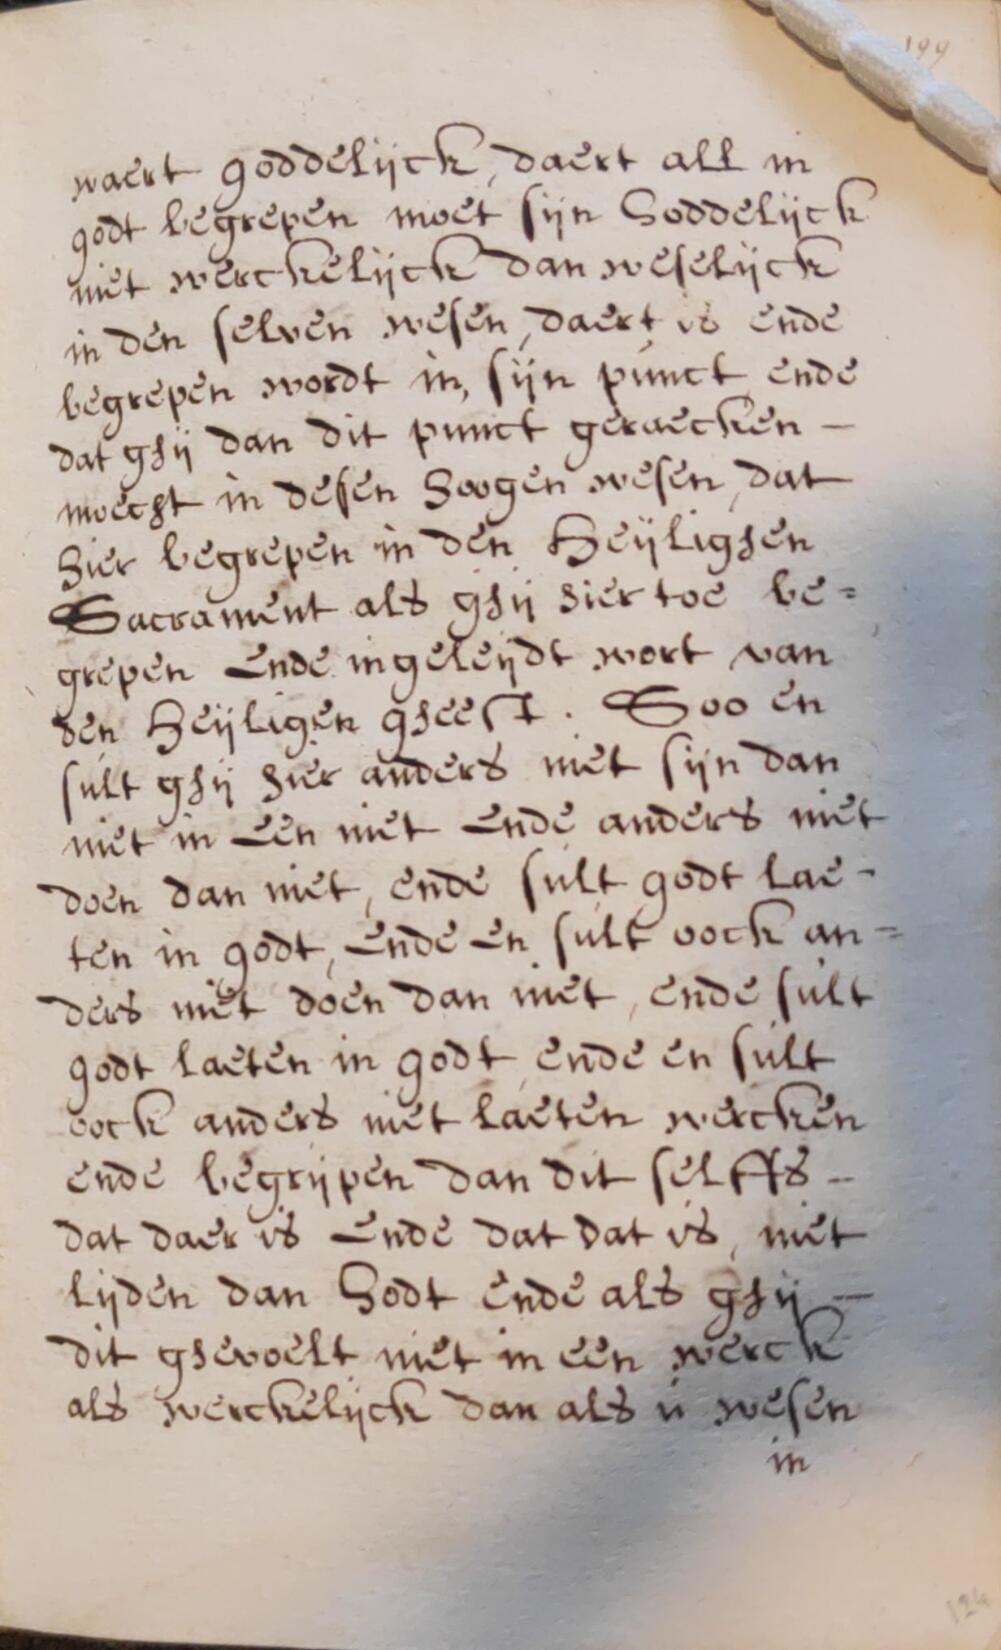 199
waert goddelijck, daert all in
godt begrepen moet sijn Goddelijck
niet werckelijck dan weselijck
in den selven wesen, daert is ende
begrepen wordt in, sijn punct, ende
dat ghij dan dit punct geraecken –
moecht in desen hoogen wesen, dat
hier begrepen in den Heijlighen
Sacrament als ghij hier toe be=
grepen Ende ingeleijdt wort van
den heijligen gheest. Soo en
sult ghij hier anders niet sijn dan
niet in Een niet Ende anders niet
doen dan niet, ende sult godt lae-
ten in godt, Ende En sult oock an=
ders niet doen dan niet, ende sult
godt laeten in godt, ende en sult
oock anders niet laeten wercken
ende begrijpen dan dit selffs –
dat daer is Ende dat dat is, niet
lijden dan Godt ende als ghij –
dit ghevoelt niet in een werck
als werckelijck dan als u wesen
in
124